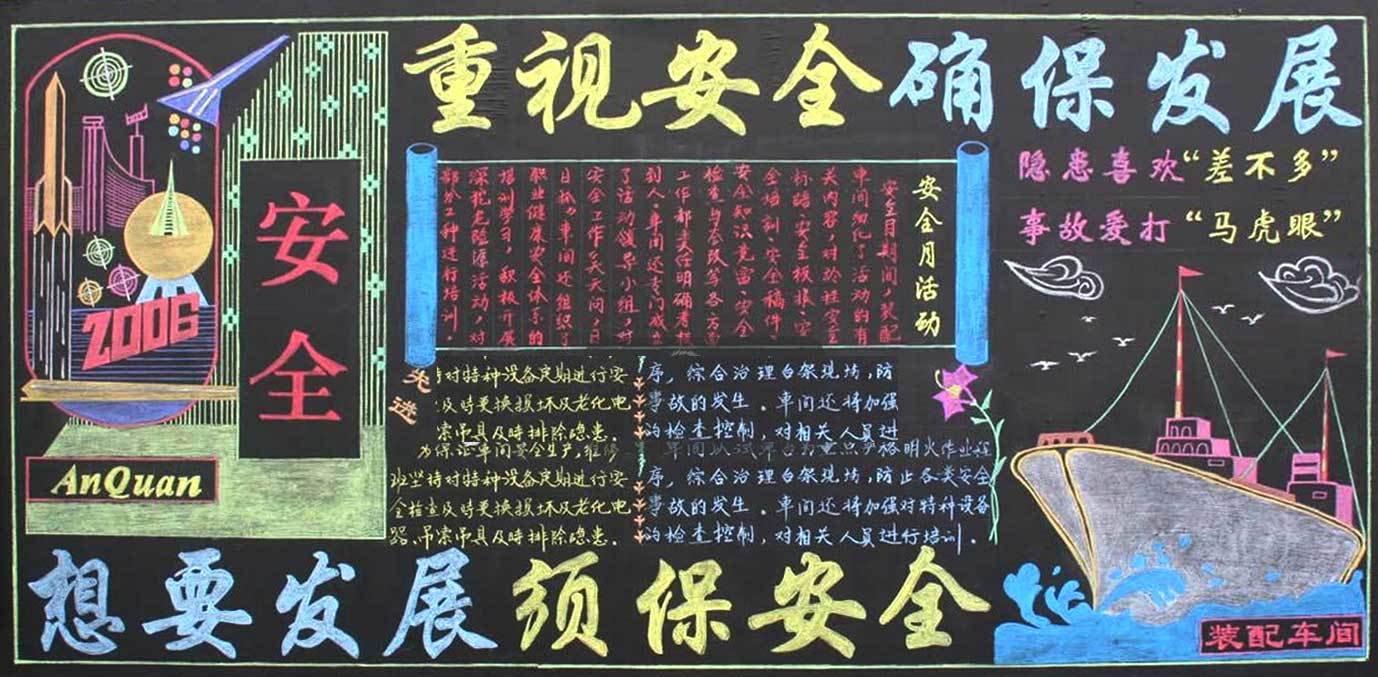 重视安全确保发展
隐患喜欢“差不多”
事故爱打“马虎眼”
安全
2006
AnQuan
安全月活动
安全月期间，装配
车间细化了活动的有
关内容，对於挂安全
标语、安全板报、安
全培训、安全稿件、
安全知识竞赛、安全
检查与奇改等各方面
工作都责任明确考核
到人。车间还专门成立
了活动领导小组，对
安全工作
职业健康安全体系的
培训学习，积极开展
深挖危险源活动，对
部分工种进行培训，
先进
持对特种设备定期进行安
及时更换损坏及老化电
索吊具及时排除隐患。
为保证车间安全生产，维修
班坚持对特种设备定期进行安
全检查及时更换损坏及老化电
器、吊索吊具及时排除隐患。
序，综合治理台架现场，防
事故的发生。车间还将加强
的检查控制，对相关人员进
车间以试车台为重点严格明火作业程
序，综合治理台架现场，防止各类安全
事故的发生。车间还将加强对特种设备
的检查控制，对相关人员进行培训。
想要发展须保安全
装配车间